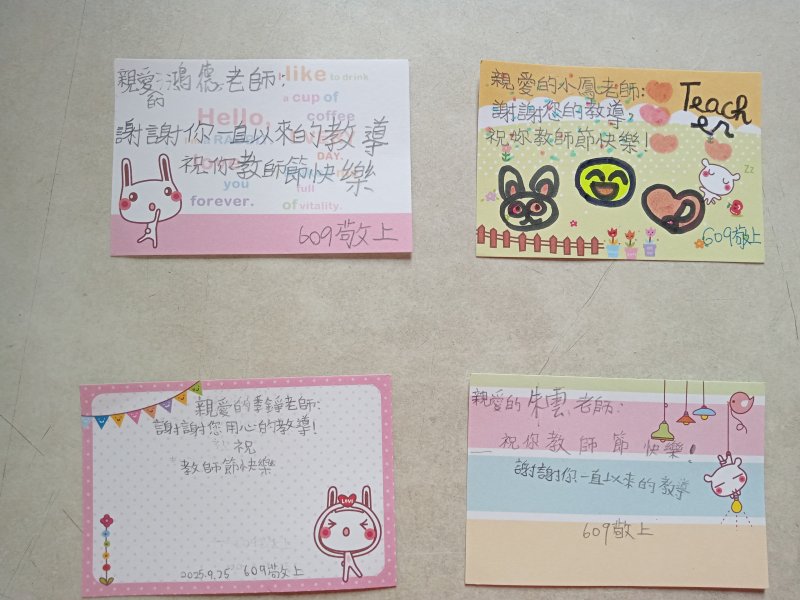 親愛的鴻德老師:
謝謝你一直以來的教導
祝你教師節快樂
609敬上
like to drink
a cup of
coffee
Hello,
DAY.
you
full
forever.
of vitality.
親愛的小鳳老師:
謝謝您的教導,
祝妳教師節快樂!
Teach
er
zz
609敬上
親愛的季錚老師:
謝謝您用心的教導!
祝
教師節快樂
LOVE
2025.9.25 609敬上
親愛的朱雲老師:
祝你教師節快樂!
謝謝你一直以來的教導
609敬上